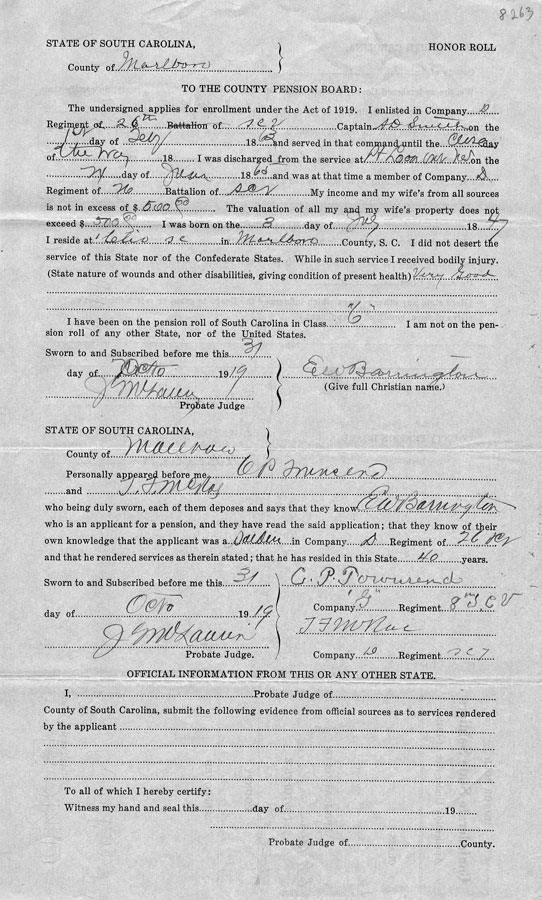 8263
STATE OF SOUTH CAROLINA, HONOR ROLL
County of Marlboro
TO THE COUNTY PENSION BOARD:
The undersigned applies for enrollment under the Act of 1919. I enlisted in Company D
Regiment of 26th Battalion of SCV Captain AD Smith on the
1st day of Feby 1863 and served in that command until the Close day
of the War 18 I was discharged from the service at on the
day of 1865 and was at that time a member of Company D
Regiment of No Battalion of SCV My income and my wife's from all sources
is not in excess of $ 500.00 The valuation of all my and my wife's property does not
exceed $ 500.00 I was born on the 3 day of 18
I reside at Clio SC in Marlboro County, S. C. I did not desert the
service of this State nor of the Confederate States. While in such service I received bodily injury.
(State nature of wounds and other disabilities, giving condition of present health) Very Good
I have been on the pension roll of South Carolina in Class "C" I am not on the pen-
sion roll of any other State, nor of the United States.
Sworn to and Subscribed before me this 31
day of Octo 1919 EW Barrington
J McLaurin (Give full Christian name.)
Probate Judge
STATE OF SOUTH CAROLINA,
County of Marlboro
Personally appeared before me C P Townsend
and T. F. McRae
who being duly sworn, each of them deposes and says that they know EW Barrington
who is an applicant for a pension, and they have read the said application; that they know of their
own knowledge that the applicant was a Soldier in Company D Regiment of 26
and that he rendered services as therein stated; that he has resided in this State 40 years.
Sworn to and Subscribed before me this 31 C. P. Townsend
Company "G" Regiment 8"
day of Octo 1919
J McLaurin T F McRae
Probate Judge. Company D Regiment
OFFICIAL INFORMATION FROM THIS OR ANY OTHER STATE.
I, Probate Judge of
County of South Carolina, submit the following evidence from official sources as to services rendered
by the applicant
To all of which I hereby certify:
Witness my hand and seal this day of 19
Probate Judge of County.